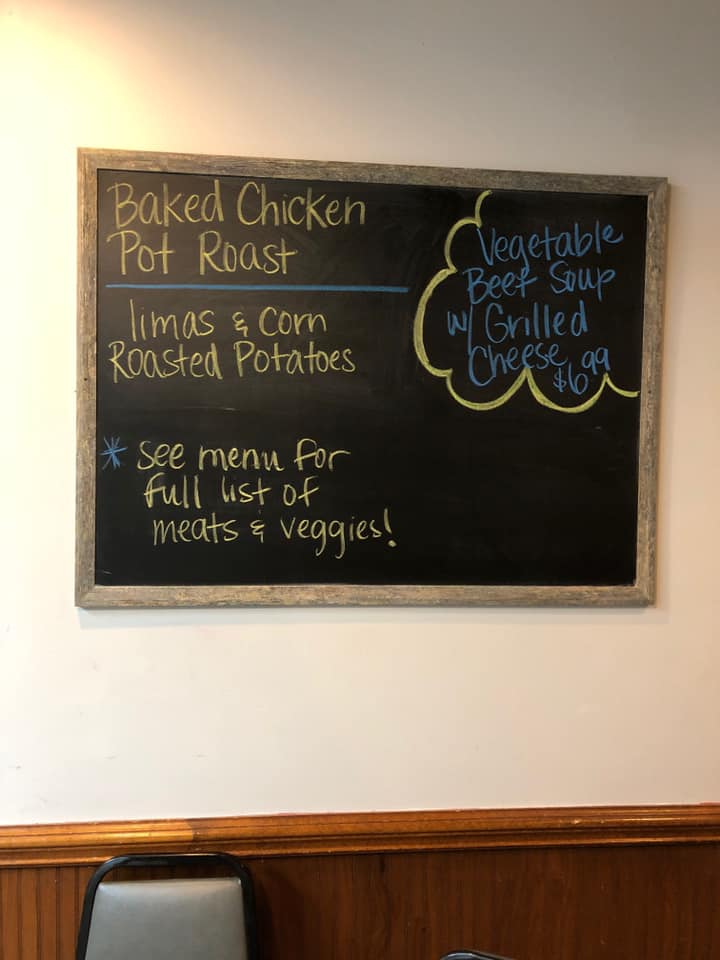 Baked Chicken
Pot Roast
limas & corn
Roasted Potatoes
* see menu for
full list of
meats & veggies!
Vegetable
Beef Soup
w/ Grilled
Cheese
$6.99